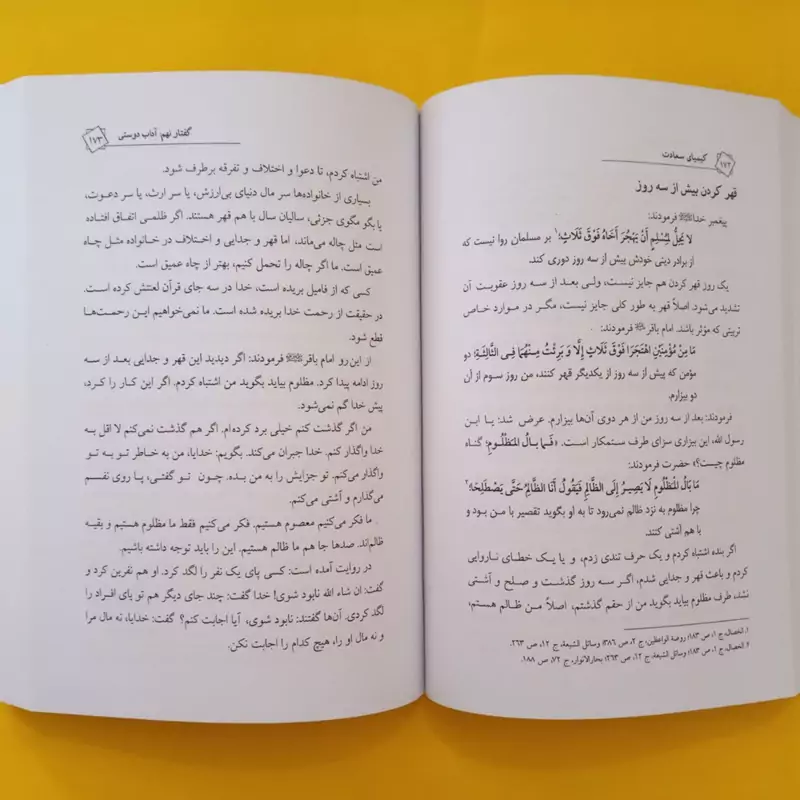 ۱۷۲ کیمیای سعادت
قهر کردن بیش از سه روز
پیغمبر خدا ﷺ فرمودند:
لَا یَحِلُّ لِمُسْلِمٍ أَنْ یَهْجُرَ أَخَاهُ فَوْقَ ثَلَاثٍ؛۱ بر مسلمان روا نیست که
از برادر دینی خودش بیش از سه روز دوری کند.
یک روز قهر کردن هم جایز نیست، ولی بعد از سه روز عقوبت آن
تشدید می‌شود. اصلاً قهر به طور کلی جایز نیست، مگر در موارد خاص
تربیتی که مؤثر باشد. امام باقر فرمودند:
مَا مِنْ مُؤْمِنَیْنِ اهْتَجَرَا فَوْقَ ثَلَاثٍ إِلَّا وَ بَرِئْتُ مِنْهُمَا فِی الثَّالِثَةِ؛ دو
مؤمن که بیش از سه روز از یکدیگر قهر کنند، من روز سوم از آن
دو بیزارم.
فرمودند: بعد از سه روز من از هر دوی آن‌ها بیزارم. عرض شد: یا ابن
رسول الله، این بیزاری سزای طرف ستمکار است. «فَمَا بَالُ الْمَظْلُومِ؛ گناه
مظلوم چیست؟» حضرت فرمودند:
مَا بَالُ الْمَظْلُومِ لَا یَصِیرُ إِلَی الظَّالِمِ فَیَقُولُ أَنَا الظَّالِمُ حَتَّی یَصْطَلِحَا؛۲
چرا مظلوم به نزد ظالم نمی‌رود تا به او بگوید تقصیر با من بود و
با هم آشتی کنند.
اگر بنده اشتباه کردم و یک حرف تندی زدم، و یا یک خطای ناروایی
کردم و باعث قهر و جدایی شدم، اگر سه روز گذشت و صلح و آشتی
نشد، طرف مظلوم بیاید بگوید من از حقم گذشتم، اصلاً من ظالم هستم؛
۱. الخصال، ج ۱، ص ۱۸۳؛ روضة الواعظین، ج ۲، ص ۳۸۶؛ وسائل الشیعة، ج ۱۲، ص ۲۶۳.
۲. الخصال، ج ۱، ص ۱۸۳؛ وسائل الشیعة، ج ۱۲، ص ۲۶۳؛ بحارالانوار، ج ۷۲، ص ۱۸۸.
گفتار نهم: آداب دوستی ۱۷۳
من اشتباه کردم، تا دعوا و اختلاف و تفرقه برطرف شود.
بسیاری از خانواده‌ها سر مال دنیای بی‌ارزش، یا سر ارث، یا سر دعوت،
یا بگو مگوی جزئی، سالیان سال با هم قهر هستند. اگر ظلمی اتفاق افتاده
است مثل چاله می‌ماند، اما قهر و جدایی و اختلاف در خانواده مثل چاه
عمیق است. ما اگر چاله را تحمل کنیم، بهتر از چاه عمیق است.
کسی که از فامیل بریده است، خدا در سه جای قرآن لعنتش کرده است.
در حقیقت از رحمت خدا بریده شده است. ما نمی‌خواهیم این رحمت‌ها
قطع شود.
از این رو امام باقر فرمودند: اگر دیدید این قهر و جدایی بعد از سه
روز ادامه پیدا کرد. مظلوم بیاید بگوید من اشتباه کردم. اگر این کار را کرد،
پیش خدا گم نمی‌شود.
من اگر گذشت کنم خیلی برد کرده‌ام. اگر هم گذشت نمی‌کنم لا اقل به
خدا واگذار کنم. خدا جبران می‌کند. بگویم: خدایا، من به خاطر تو به تو
واگذار می‌کنم. تو جزایش را به من بده. چون تو گفتی، پا روی نفسم
می‌گذارم و آشتی می‌کنم.
ما فکر می‌کنیم معصوم هستیم. فکر می‌کنیم فقط ما مظلوم هستیم و بقیه
ظالم‌اند. صدها جا هم ما ظالم هستیم. این را باید توجه داشته باشیم.
در روایت آمده است: کسی پای یک نفر را لگد کرد. او هم نفرین کرد و
گفت: ان شاء الله نابود شوی! خدا گفت: چند جای دیگر هم تو پای افراد را
لگد کردی. آن‌ها گفتند: نابود شوی، آیا اجابت کنم؟ گفت: خدایا، نه مال مرا
و نه مال او را، هیچ کدام را اجابت نکن.